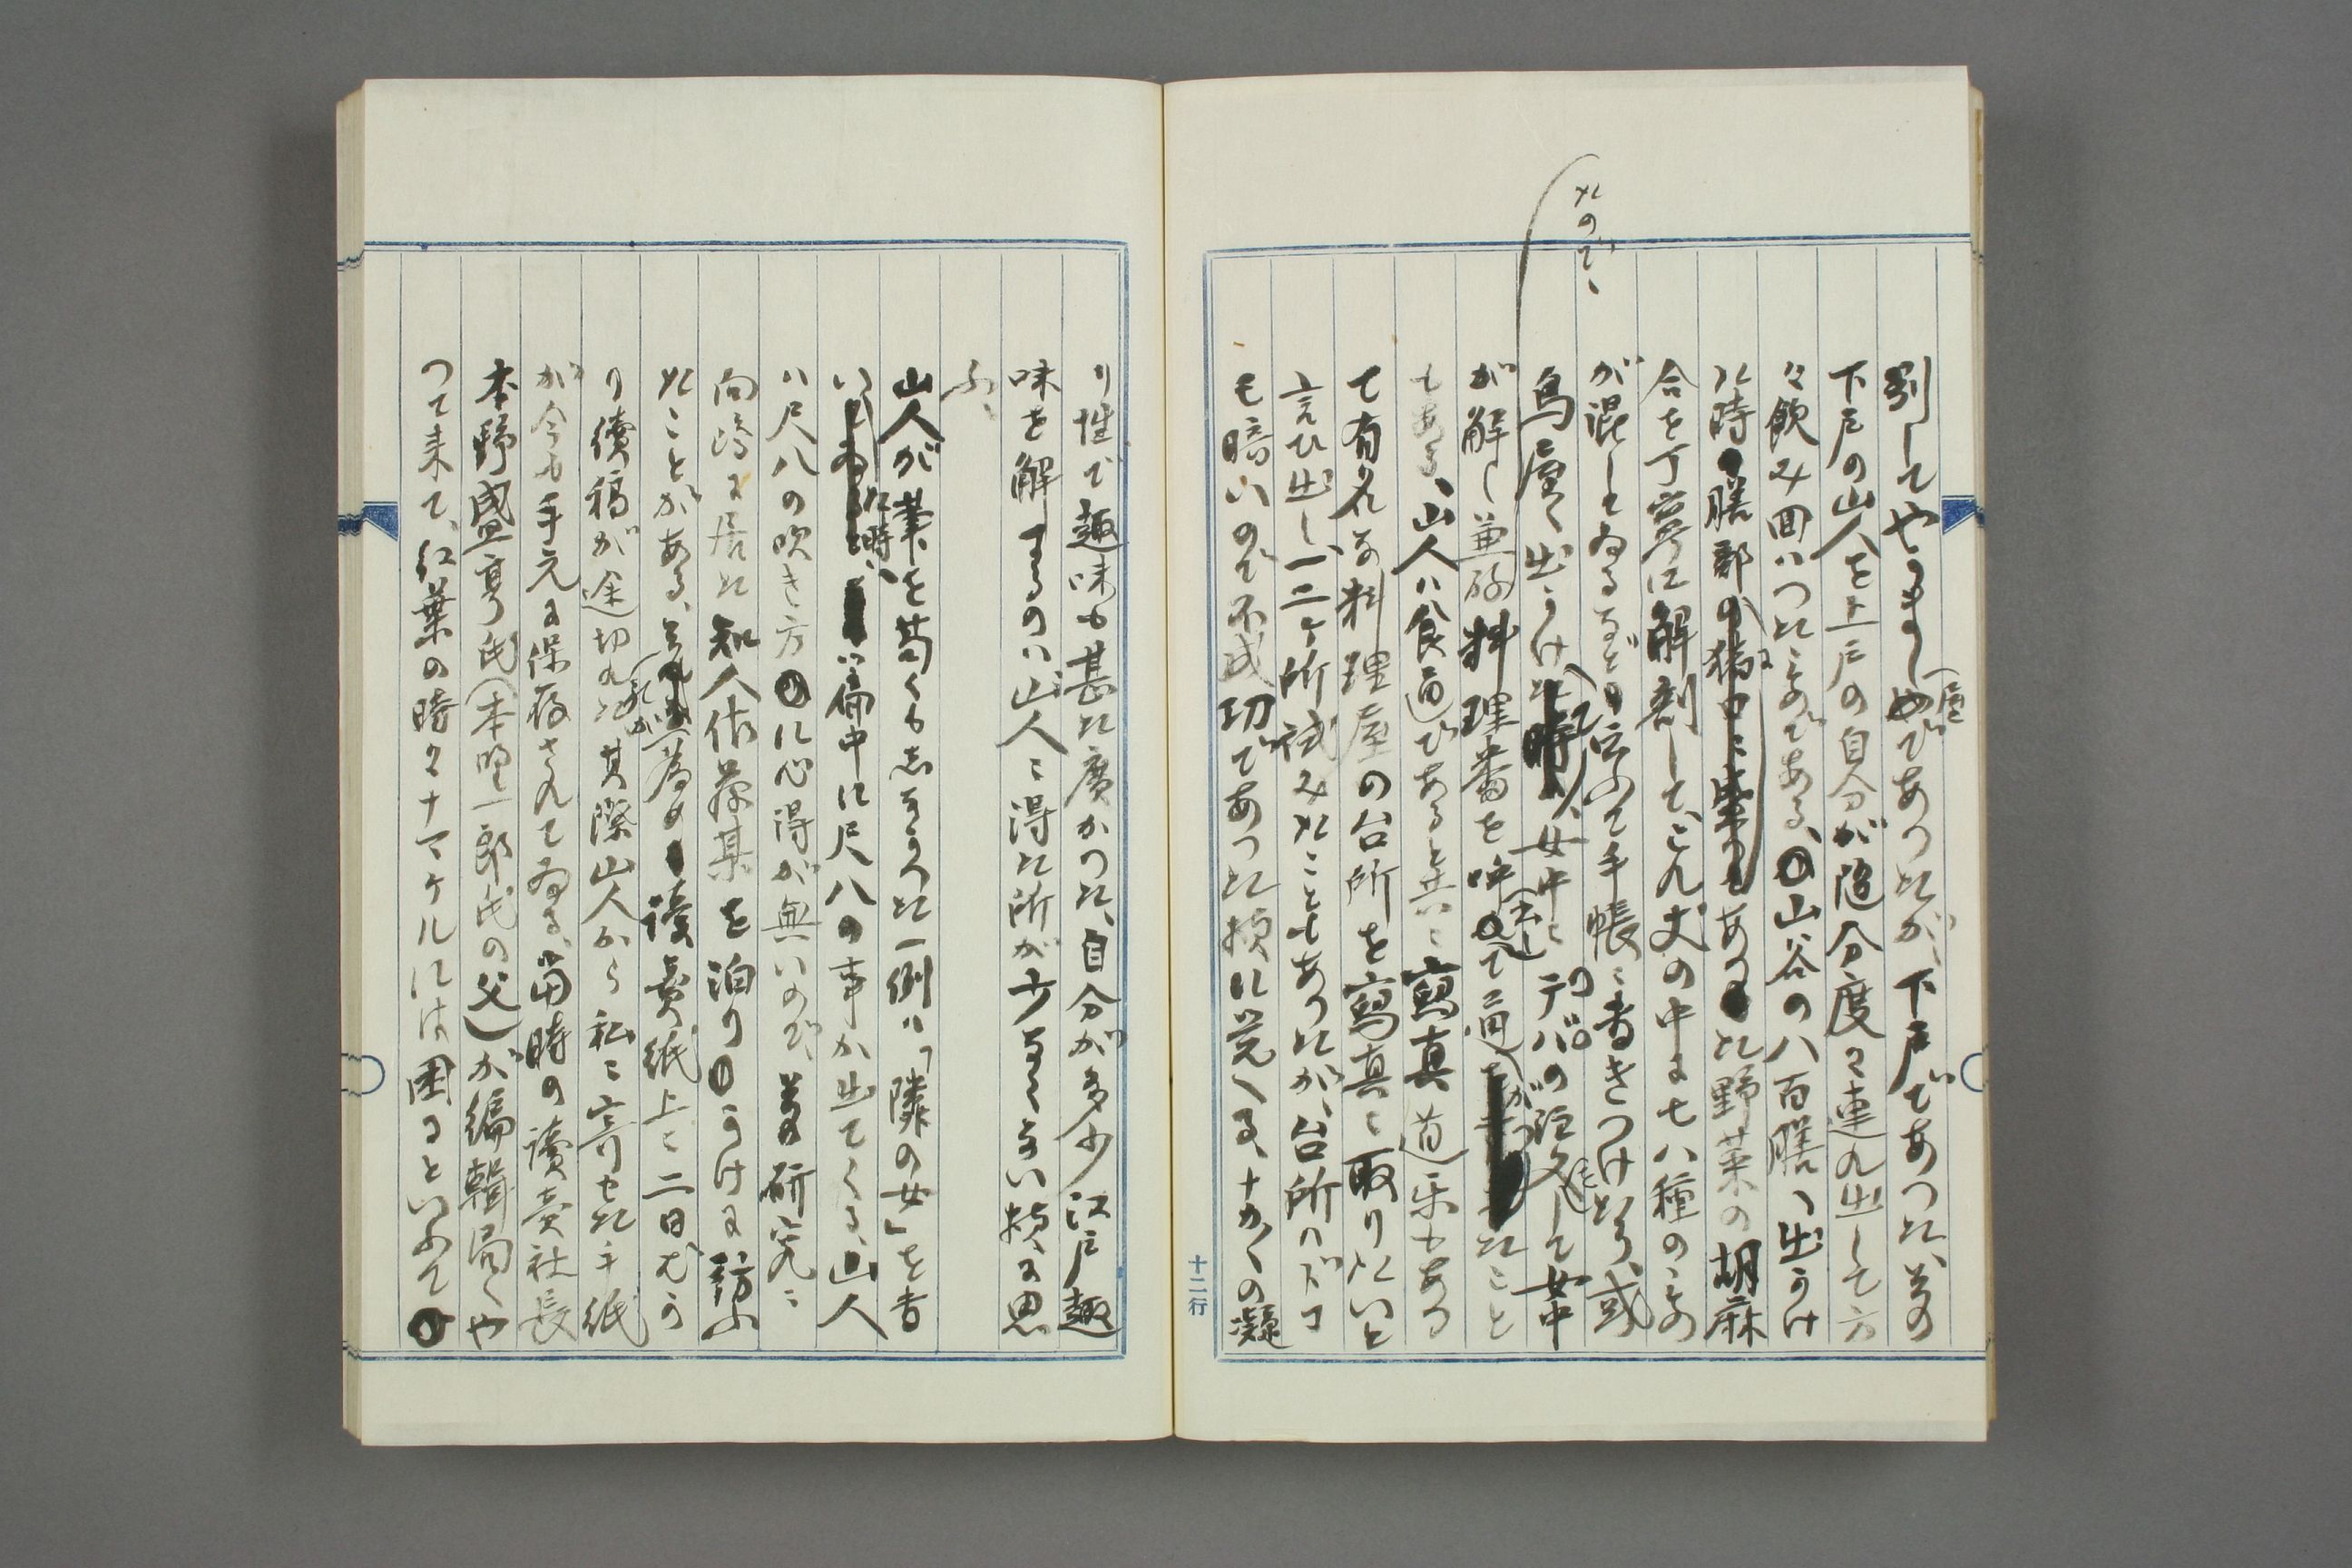 別してやかましい屋であつたが、下戸であつた、その
下戸の山人を上戸の自分が随分度々連れ出して方
々飲み回はつたものである、山谷の八百膳へ出かけ
た時膳部の猪口にあつた野菜の胡麻
合を丁寧に解剖して、これ丈の中に七八種のもの
が混してゐるなどゝ云ふて手帳に書きつけたり、或
鳥屋へ出かけて、女中にテバの注文して女中
が解し兼ね料理番を呼出して通がつたこと
もある、山人は食通であると共に寫真道楽もあつ
て有名な料理屋の台所を寫真に取りたいと
言ひ出し、一二ケ所試みたこともあつたが、台所はドコ
も暗いので不成功であつた様に覚へる、十カ〱の凝
れので、
十二行
り性で趣味も甚た廣かつた、自分が多少江戸趣
味を解するのは山人に得た所が少なくない様に思
ふ、
山人が筆を苟くもしなかつた一例は「隣の女」を書
いた時、篇中に尺八の事が出てくる、山人
は尺八の吹き方に心得が無いので、其研究に
向島に居た知人佐藤某を泊りかけに訪ふ
たことがある、それが為め讀賣紙上に二日ばか
り續稿が途切れた、其際山人から私に寄せた手紙
が今も手元に保存されてゐる、當時の讀賣社長
本野盛亨氏(本野一郎氏の父)が編輯局へや
つて来て、紅葉の時々ナマケルには困るといふて